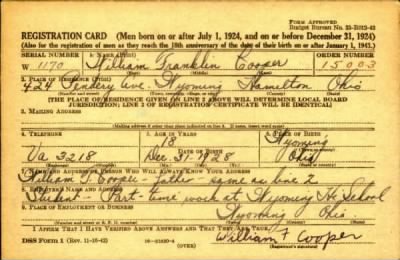 FORM APPROVED
Budget Bureau No. 33-R012-43
REGISTRATION CARD (Men born on or after July 1, 1924, and on or before December 31, 1924)
(Also for the registration of men as they reach the 18th anniversary of the date of their birth on or after January 1, 1943.)
SERIAL NUMBER 1. NAME (Print) ORDER NUMBER
W 1170 William Franklin Cooper 15003
2. PLACE OF RESIDENCE (Print)
424 Ave. Wyoming Hamilton Ohio
[THE PLACE OF RESIDENCE GIVEN ON LINE 2 ABOVE WILL DETERMINE LOCAL BOARD
JURISDICTION; LINE 2 OF REGISTRATION CERTIFICATE WILL BE IDENTICAL]
3. MAILING ADDRESS
[Mailing address if other than place indicated on line 2. If same insert word same]
4. TELEPHONE 5. AGE IN YEARS 6. PLACE OF BIRTH
18 Wyoming
Va 3218 Dec. 31-1928 Ohio
7. NAME AND ADDRESS OF PERSON WHO WILL ALWAYS KNOW YOUR ADDRESS
William Cooper - father - same as line 2
8. EMPLOYER'S NAME AND ADDRESS
Student - Part-time work at Wyoming Hi School
9. PLACE OF EMPLOYMENT OR BUSINESS
Wyoming Ohio.
I AFFIRM THAT I HAVE VERIFIED ABOVE ANSWERS AND THAT THEY ARE TRUE.
DSS FORM 1 (Rev. 11-16-42) (OVER) William F Cooper
(Registrant's signature)